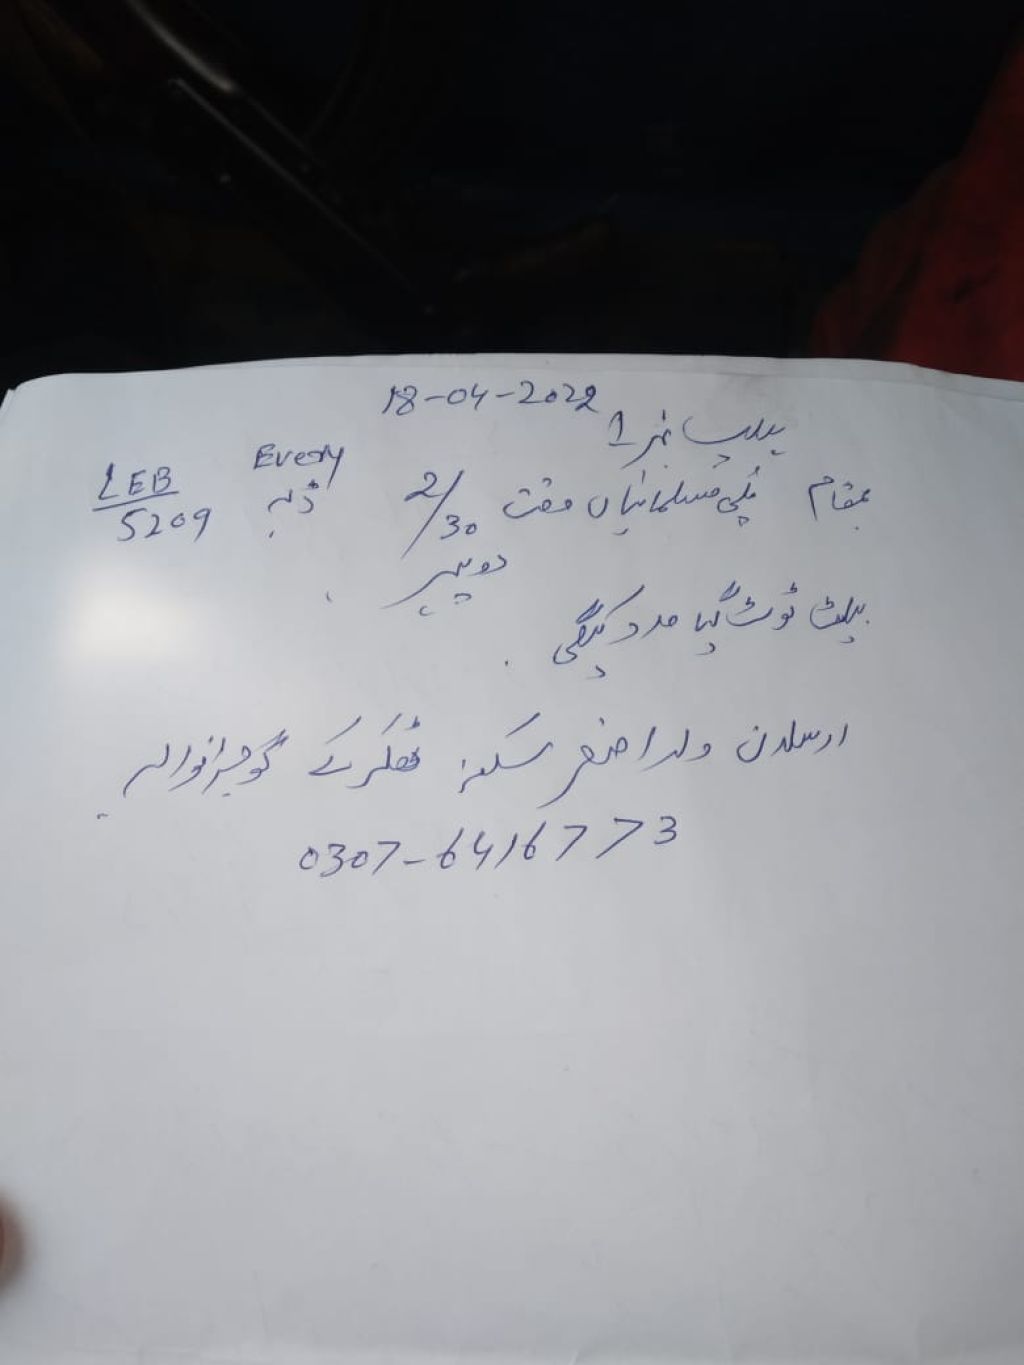 18-04-2022
ہیلپ نمبر 1
بمقام پلی مسلمانیاں وقت 2/30 دوپہر Every ڈبہ LEB 5209
بیلٹ ٹوٹ گیا مدد کیگی
ارسلان ولد اصغر سکنہ ٹھکر کے گوجرانوالہ
0307-6416773